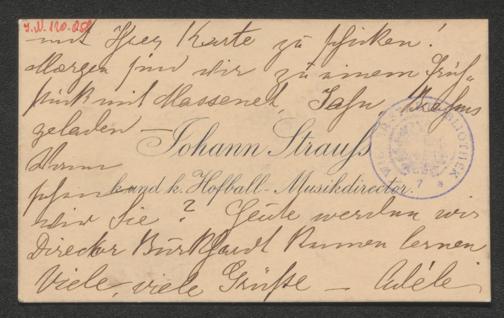 I.N. 120.252
mit Ihrer Karte zu schicken!
Morgen sind wir zu einem Früh-
stück mit Massenet, Jahn
geladen —
Johann Strauß
Wann
k. und k. Hofball-Musikdirector.
wir Sie? Heute werden wir
Director Burkhardt kennen lernen
Viele, viele Grüße — Adèle